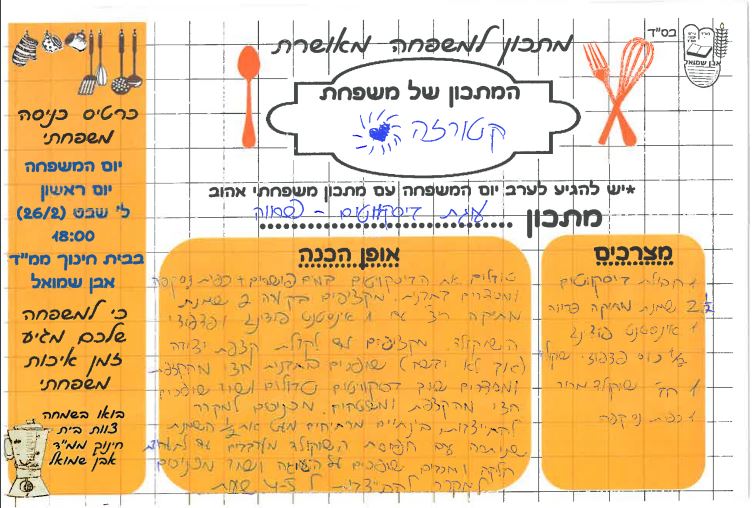 בס"ד
אבן שמואל
מתכון למשפחה מאושרת
המתכון של משפחת
קטורזה
*יש להגיע לערב יום המשפחה עם מתכון משפחתי אהוב
מתכון עוגת ביסקוויטים - פשוטה
מצרכים
1 חבילת ביסקוטים
2 1/2 שמנת מתיקה פרווה
1 אינסטנט פודינג
1/2 כוס פצפוצי שוקולד
1 שוקולד מריר
1 כפית נס קפה
אופן הכנה
טובלים את הביסקוטים במים פושרים + כפית נס קפה
ומסדרים בתבנית. מקציפים בקערה 2 שמנת
מתיקה חצי 1 אינסטנט פודינג ופצפוצי
השוקולד. מקציפים עד לקבלת קצפת יציבה
(אך לא) שופכים בתבנית חצי מהקצפת
ומסדרים שוב ביסקוויטים טבולים ושוב שופכים
חצי מהקצפת ומשטחים. מכניסים למקרר
להתייצבות. בינתיים מרתיחים מעט את 1/2 השמנת
שנותרה עם חפיסת השוקולד מערבבים עד לתערובת
חלקה שופכים על העוגה ושוב מכניסים
למקרר להתייצבות ל 4-5 שעות
כרטיס כניסה
משפחתי
יום המשפחה
יום ראשון
ל' שבט (26/2)
18:00
בבית חינוך ממ"ד
אבן שמואל
כי למשפחה
שלכם מגיע
זמן איכות
משפחתי
בואו בשמחה
צוות בית
חינוך ממ"ד
אבן שמואל